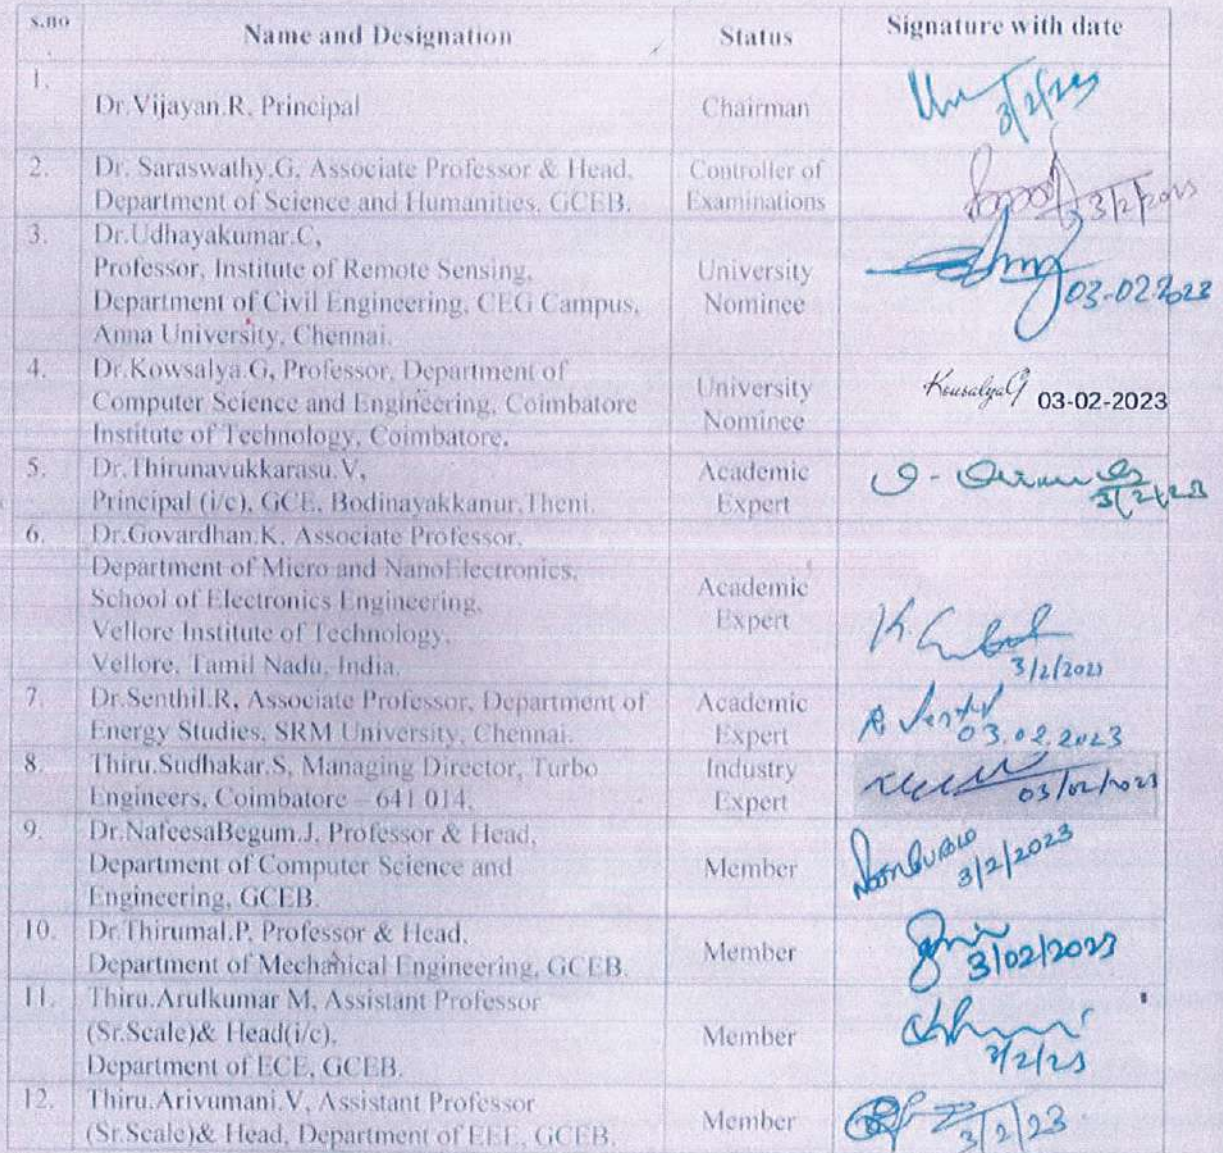 s.no Name and Designation Status Signature with date
1. Dr.Vijayan.R, Principal Chairman 3/2/23
2. Dr. Saraswathy.G, Associate Professor & Head, Controller of
Department of Science and Humanities, GCEB. Examinations 3/2/2023
3. Dr.Udhayakumar.C,
Professor, Institute of Remote Sensing, University
Department of Civil Engineering, CEG Campus, Nominee 03-02-2023
Anna University, Chennai.
4. Dr.Kowsalya.G, Professor, Department of
Computer Science and Engineering, Coimbatore University KousalyaG 03-02-2023
Institute of Technology, Coimbatore. Nominee
5. Dr.Thirunavukkarasu.V, Academic
Principal (i/c), GCE, Bodinayakkanur,Theni. Expert 3/2/23
6. Dr.Govardhan.K, Associate Professor,
Department of Micro and NanoElectronics, Academic
School of Electronics Engineering, Expert
Vellore Institute of Technology,
Vellore, Tamil Nadu, India. 3/2/2023
7. Dr.Senthil.R, Associate Professor, Department of Academic
Energy Studies, SRM University, Chennai. Expert 03.02.2023
8. Thiru.Sudhakar.S, Managing Director, Turbo Industry
Engineers, Coimbatore – 641 014. Expert 03/02/2023
9. Dr.NafeesaBegum.J, Professor & Head,
Department of Computer Science and Member 3/2/2023
Engineering, GCEB.
10. Dr.Thirumal.P, Professor & Head,
Department of Mechanical Engineering, GCEB. Member 3/02/2023
11. Thiru.Arulkumar M, Assistant Professor
(Sr.Scale)& Head(i/c), Member
Department of ECE, GCEB. 3/2/23
12. Thiru.Arivumani.V, Assistant Professor
(Sr.Scale)& Head, Department of EEE, GCEB. Member 3/2/23